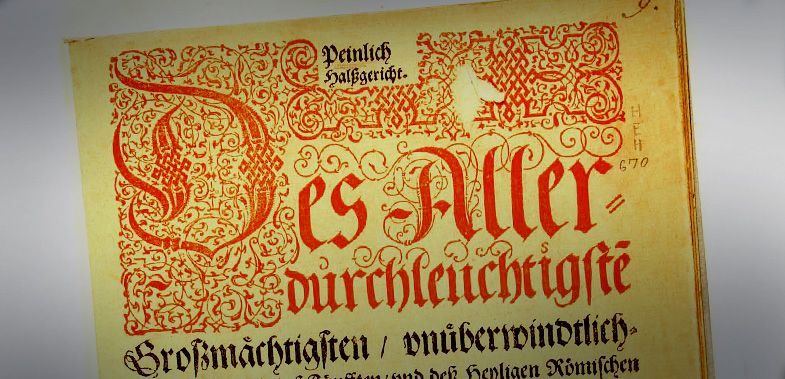 9.
Peinlich
Halßgericht.
Des Aller⸗
durchleuchtigstē
Großmächtigsten / vnüberwindtlich⸗
vnd deß Heyligen Römischen
H
E
H
670